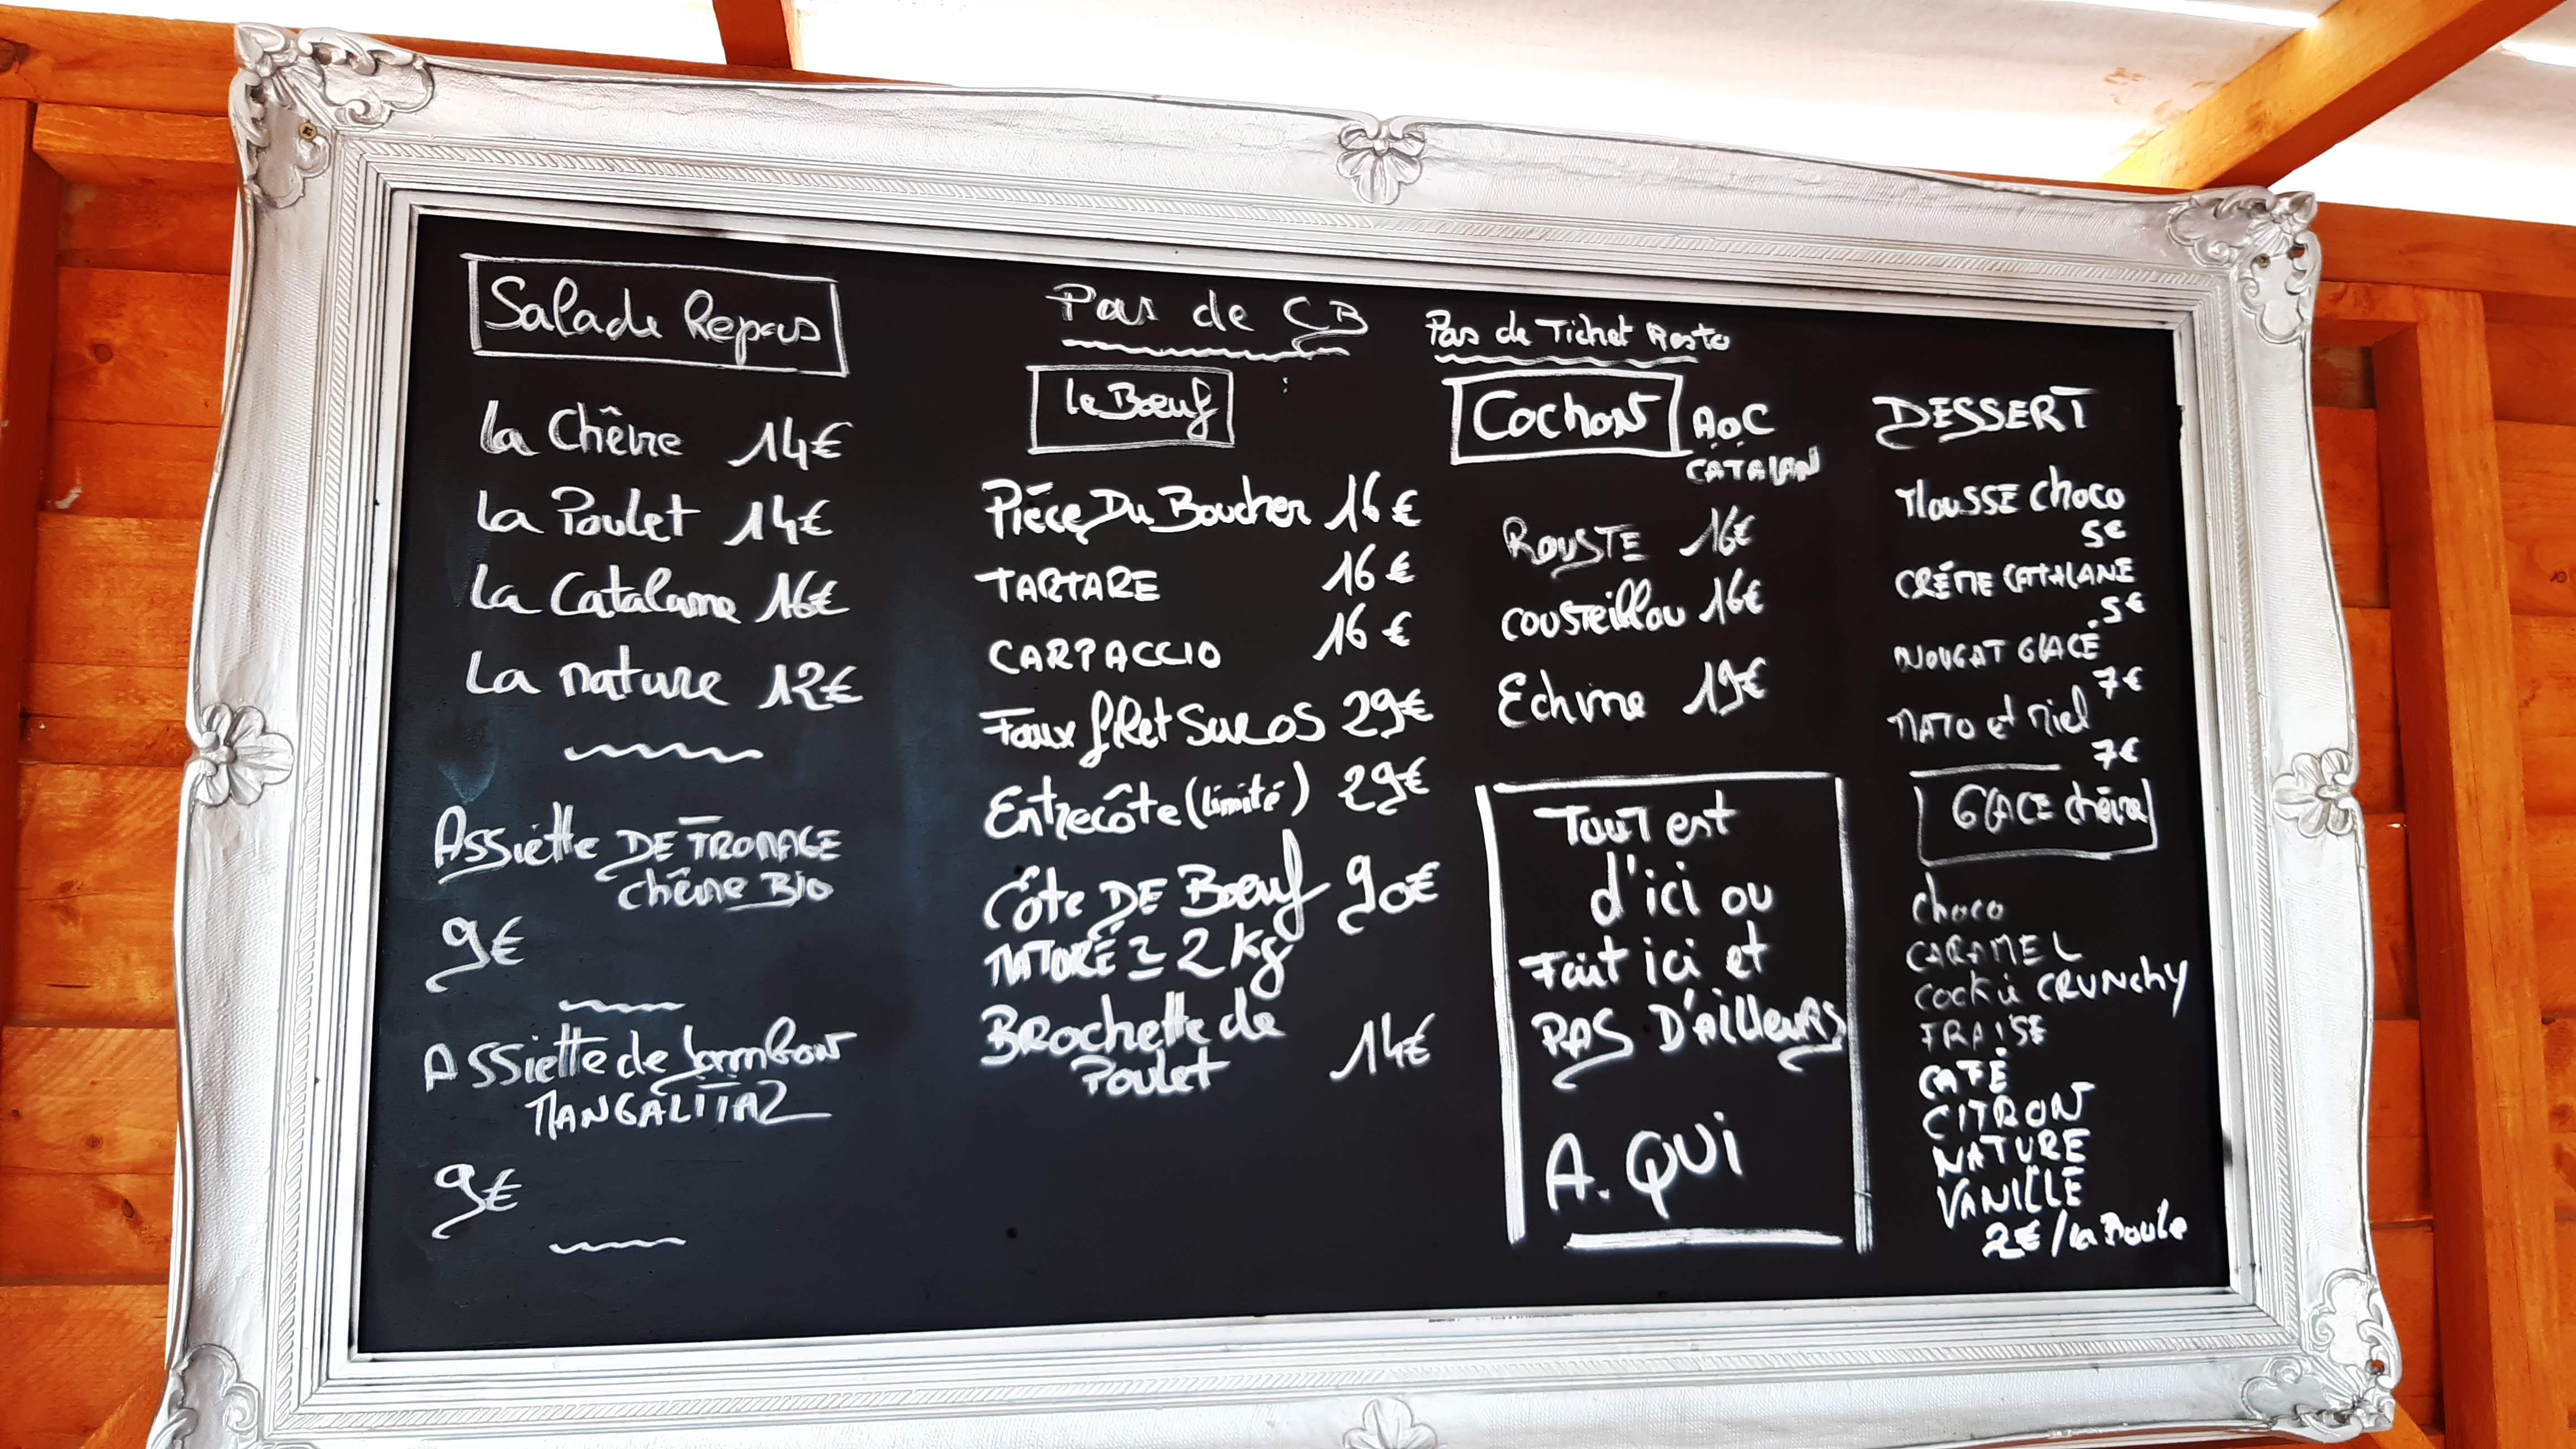 Salade Repas
La Chèvre 14€
La Poulet 14€
La Catalane 16€
La nature 12€
Assiette DE FROMAGE
chèvre Bio
9€
Assiette de Jambon
MANGALITZA
9€
Pas de CB
Le Bœuf
Pièce Du Boucher 16€
TARTARE 16€
CARPACCIO 16€
Faux filet Sur OS 29€
Entrecôte (limité) 29€
Côte DE Bœuf 90€
MATURÉ ≃ 2 Kg
Brochette de
Poulet 14€
Pas de Ticket Resto
Cochon AOC
CATALAN
ROUSTE 16€
cousteillou 16€
Echine 19€
Tout est
d'ici ou
Fait ici et
PAS D'AILLEURS
A. QUi
DESSERT
MOUSSE Choco
5€
CRÉME CATALANE
5€
NOUGAT GLACÉ
7€
MATO et Miel
7€
GLACE chèvre
choco
CARAMEL
COOKie CRUNCHY
FRAISE
CAFÉ
CITRON
NATURE
VANILLE
2€ / la Boule